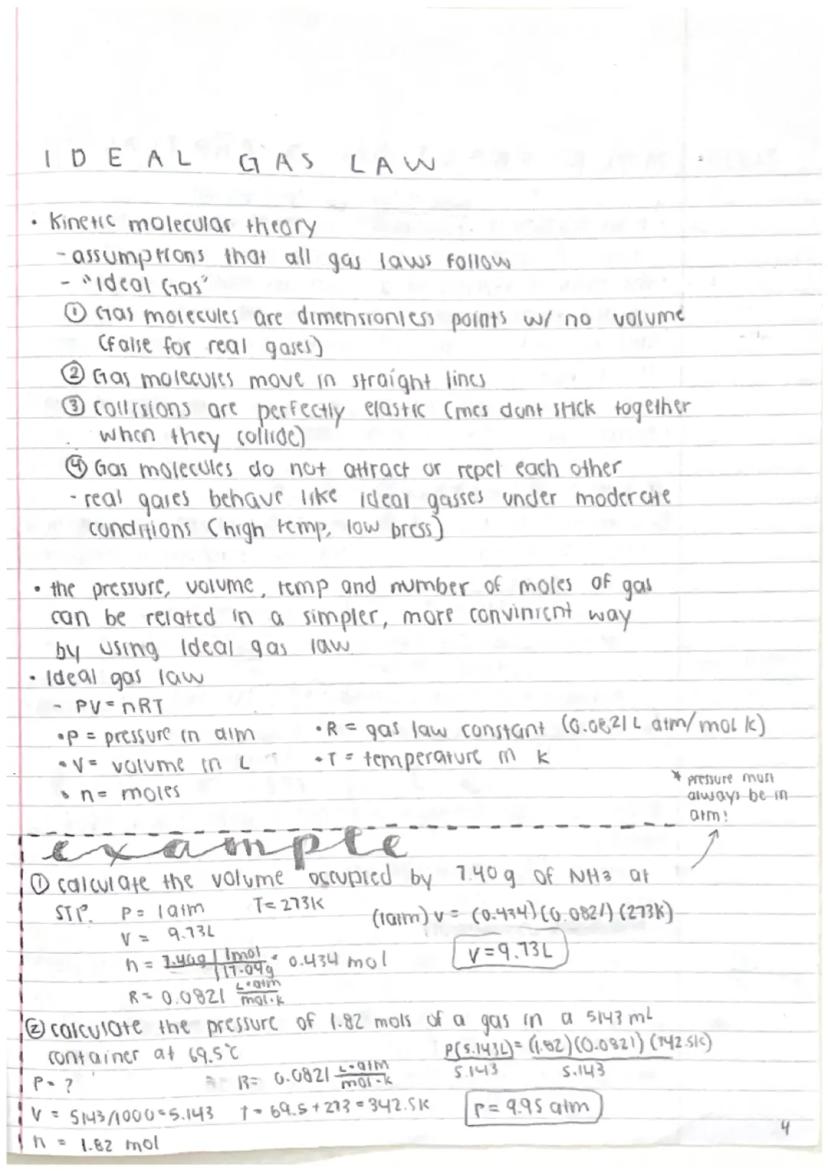 IDEAL GAS LAW
• Kinetic molecular theory
- assumptions that all gas laws follow
- "Ideal Gas"
① Gas molecules are dimensionless points w/ no volume
(false for real gases)
② Gas molecules move in straight lines
③ collisions are perfectly elastic (mcs dont stick together
when they collide)
④ Gas molecules do not attract or repel each other
- real gases behave like ideal gasses under moderate
conditions (high temp, low press)
• the pressure, volume, temp and number of moles of gas
can be related in a simpler, more convinient way
by using Ideal gas law
• Ideal gas law
- PV = nRT
• P = pressure in atm • R = gas law constant (0.0821 L atm/mol k)
• V = volume in L • T = temperature in k
• n = moles
* pressure must
always be in
atm!
example
① calculate the volume occupied by 7.40 g of NH3 at
STP. P = 1atm T = 273K (1atm) V = (0.434)(0.0821)(273K)
V = 9.73L
n = 7.40g | 1mol / 17.04g = 0.434 mol V = 9.73L
R = 0.0821 L•atm / mol•k
② calculate the pressure of 1.82 mols of a gas in a 5143 mL
container at 69.5°C P(5.143L) = (1.82)(0.0821)(342.5K)
5.143 5.143
P = ? R = 0.0821 L•atm / mol•k
V = 5143/1000 = 5.143 T = 69.5 + 273 = 342.5K P = 9.95 atm
n = 1.82 mol
4